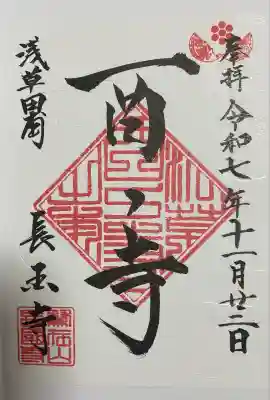 奉拝 令和七年十一月廿二日
酉ノ寺
浅草田甫
長国寺